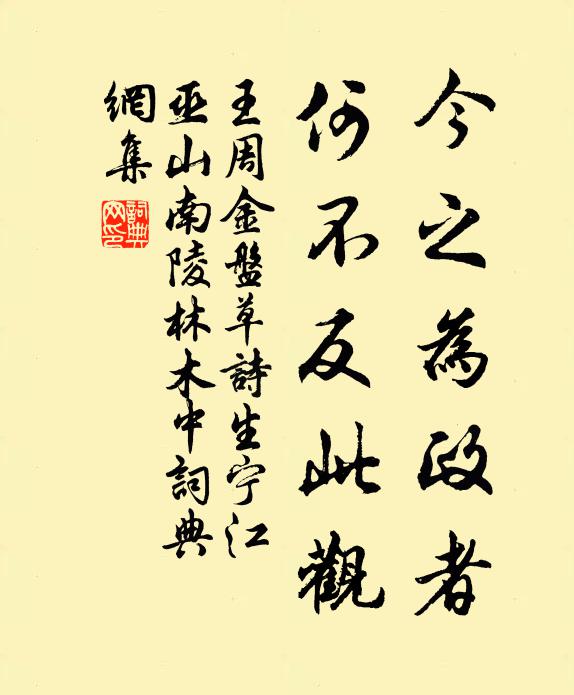 今之為政者
何不反此觀
王周金盤草詩生宁江
巫山南陵林木中詞典
網集
詞典網印